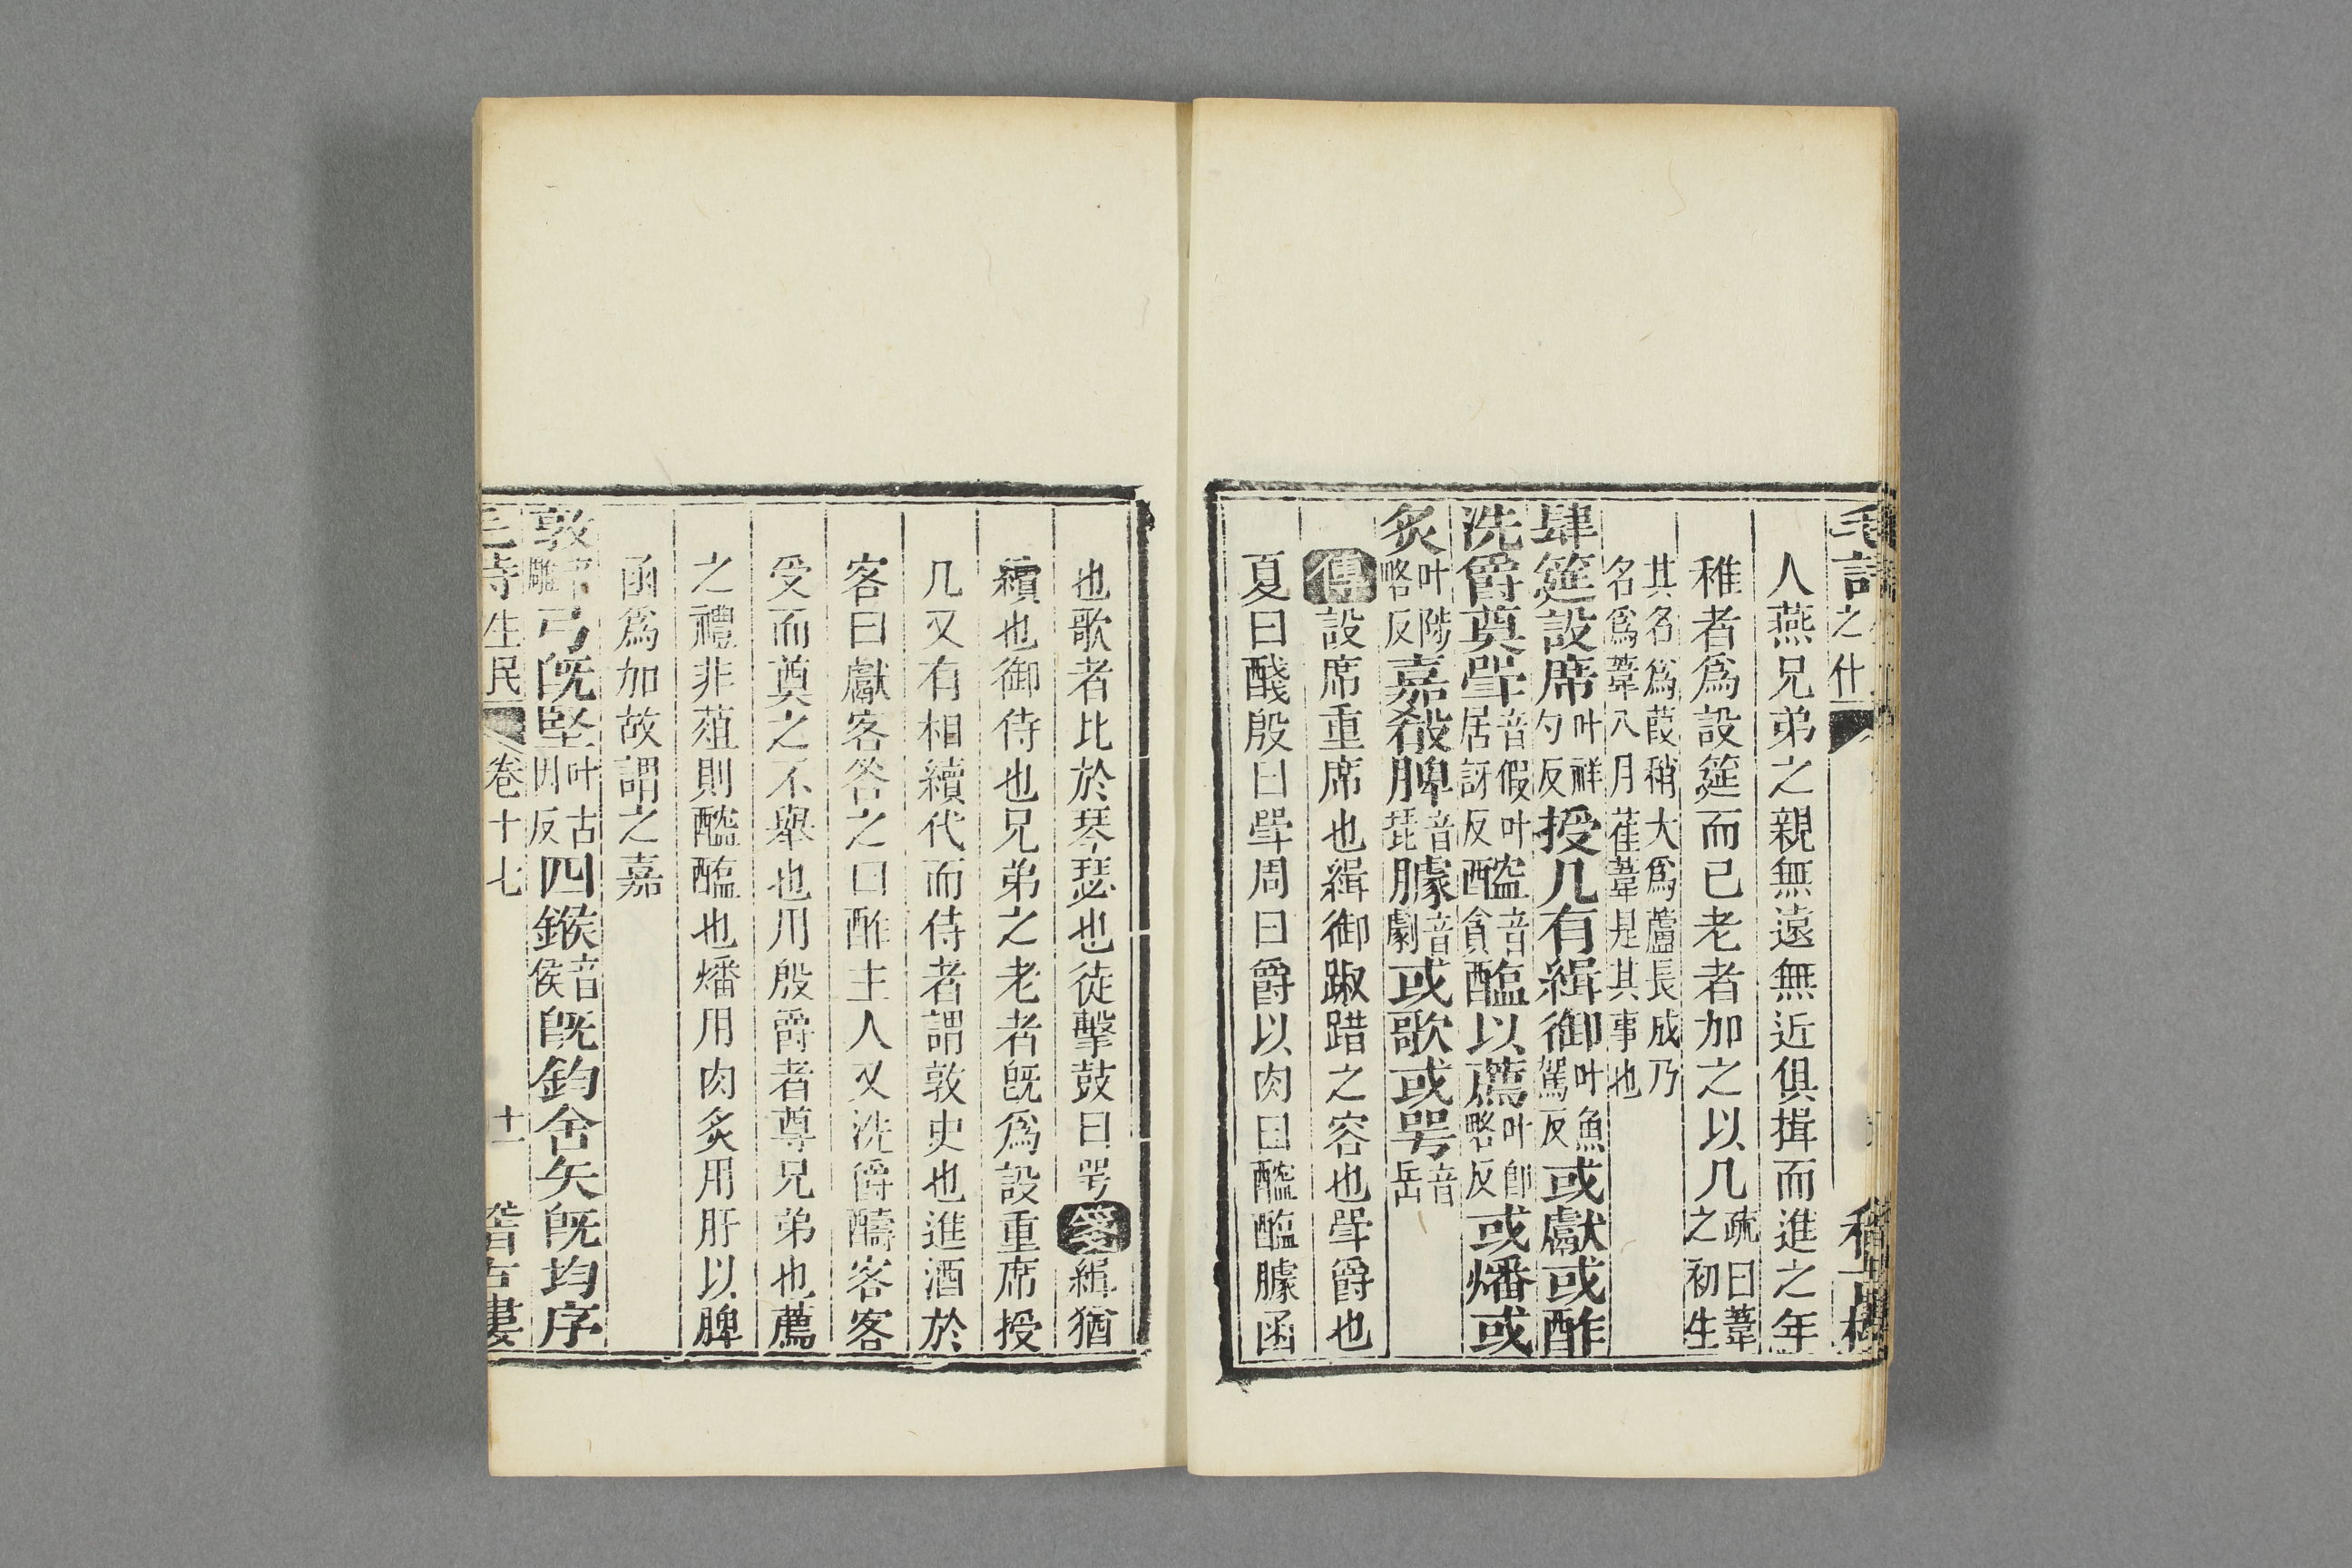 毛詩之什
人燕兄弟之親無遠無近俱揖而進之年
稚者爲設筵而已老者加之以几疏曰葦之初生
其名爲葭稍大爲蘆長成乃名爲葦八月萑葦是其事也
肆筵設席叶祥勺反授几有緝御叶魚駕反或獻或酢
洗爵奠斝音假叶居訝反醓音貪醢以薦叶卽略反或燔或
炙叶陟略反嘉殽脾音琵臄音劇或歌或咢音岳
傳設席重席也緝御踧踖之容也斝爵也
夏曰醆殷曰斝周曰爵以肉曰醓醢臄函
也歌者比於琴瑟也徒擊鼓曰咢箋緝猶
續也御侍也兄弟之老者旣爲設重席授
几又有相續代而侍者謂敦史也進酒於
客曰獻客荅之曰酢主人又洗爵醻客客
受而奠之不舉也用殷爵者尊兄弟也薦
之禮非葅則醓醢也燔用肉炙用肝以脾
函爲加故謂之嘉
敦音雕弓旣堅叶古因反四鍭音侯旣鈞舍矢旣均序
毛詩生民 卷十七 十一 稽古樓